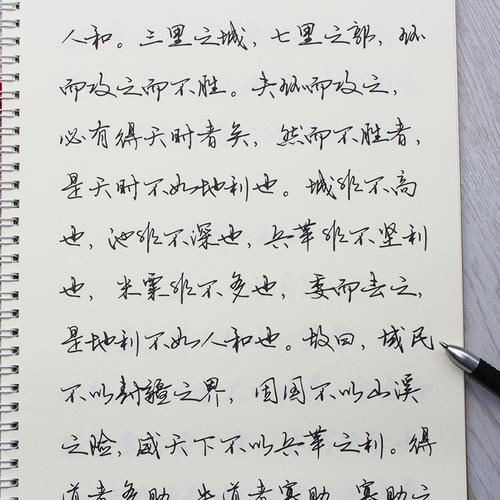 人和。三里之城，七里之郭，环
而攻之而不胜。夫环而攻之，
必有得天时者矣，然而不胜者，
是天时不如地利也。城非不高
也，池非不深也，兵革非不坚利
也，米粟非不多也，委而去之，
是地利不如人和也。故曰，域民
不以封疆之界，固国不以山溪
之险，威天下不以兵革之利。得
道者多助，失道者寡助，寡助之